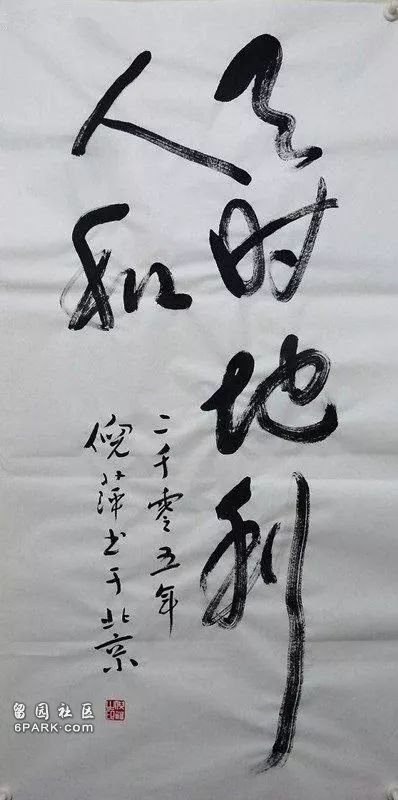 天时地利
人和
二千零五年
倪萍书于北京
留园社区
6PARK.com